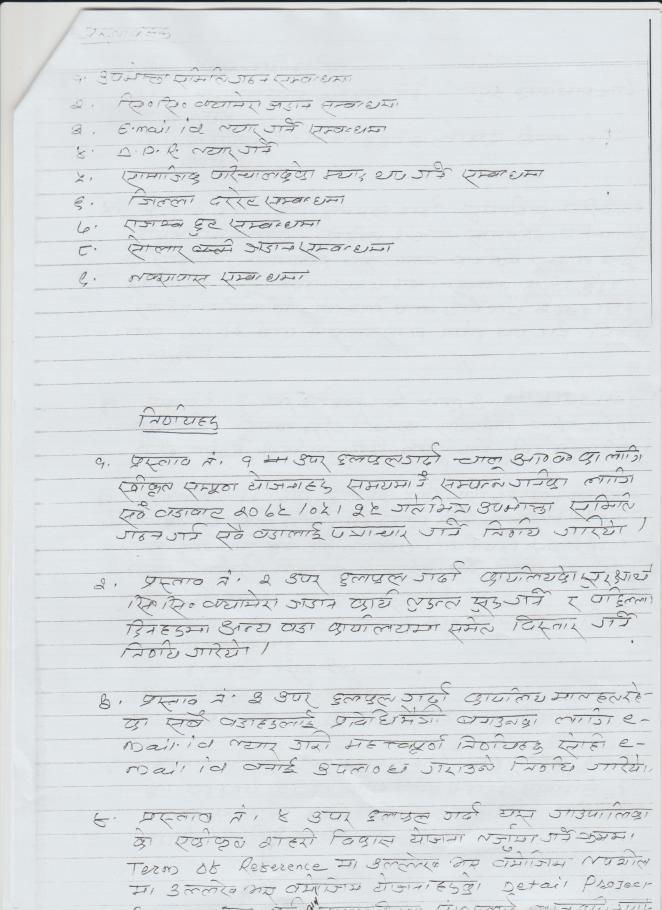 प्रस्तावहरु
१. उपभोक्ता समिति गठन सम्बन्धमा
२. सि.सि. क्यामेरा जडान सम्बन्धमा
३. E.mail id तयार गर्ने सम्बन्धमा
४. D.P.R. तयार गर्ने
५. सामाजिक परिचालकको म्याद थप गर्ने सम्बन्धमा
६. जिल्ला दररेट सम्बन्धमा
७. राजश्व छुट सम्बन्धमा
८. सोलार बत्ती जडान सम्बन्धमा
९. नक्सापास सम्बन्धमा
निर्णयहरु
१. प्रस्ताव नं. १ मा उपर छलफल गर्दा चालु आ.व. का लागि
स्वीकृत सम्पूर्ण योजनाहरु समयमानै सम्पन्न गर्नका लागि
सबै वडाबाट गते भित्र उपभोक्ता समिति
गठन गर्न सबै वडालाई पत्राचार गर्ने निर्णय गरियो।
२. प्रस्ताव नं. २ उपर छलफल गर्दा कार्यालयको सुरक्षार्थ
सि.सि. क्यामेरा जडान कार्य तुरुन्त सुरु गर्ने र पछिल्ला
दिनहरुमा अन्य वडा कार्यालयमा समेत विस्तार गर्ने
निर्णय गरियो।
३. प्रस्ताव नं. ३ उपर छलफल गर्दा कार्यालय मातहतरहे
का सबै वडाहरुलाई प्रविधिमैत्री बनाउनका लागि e-
mail.id तयार गरी महत्वपूर्ण निर्णयहरु सोही e-
mail id बनाई उपलब्ध गराउने निर्णय गरियो।
४. प्रस्ताव नं. ४ उपर छलफल गर्दा यस गाउँपालिका
को एकीकृत शहरी विकास योजना तर्जुमा गर्ने क्रममा
Term of Reference मा उल्लेख भए बमोजिम तपशील
मा उल्लेख भए बमोजिम योजनाहरुको Detail Project